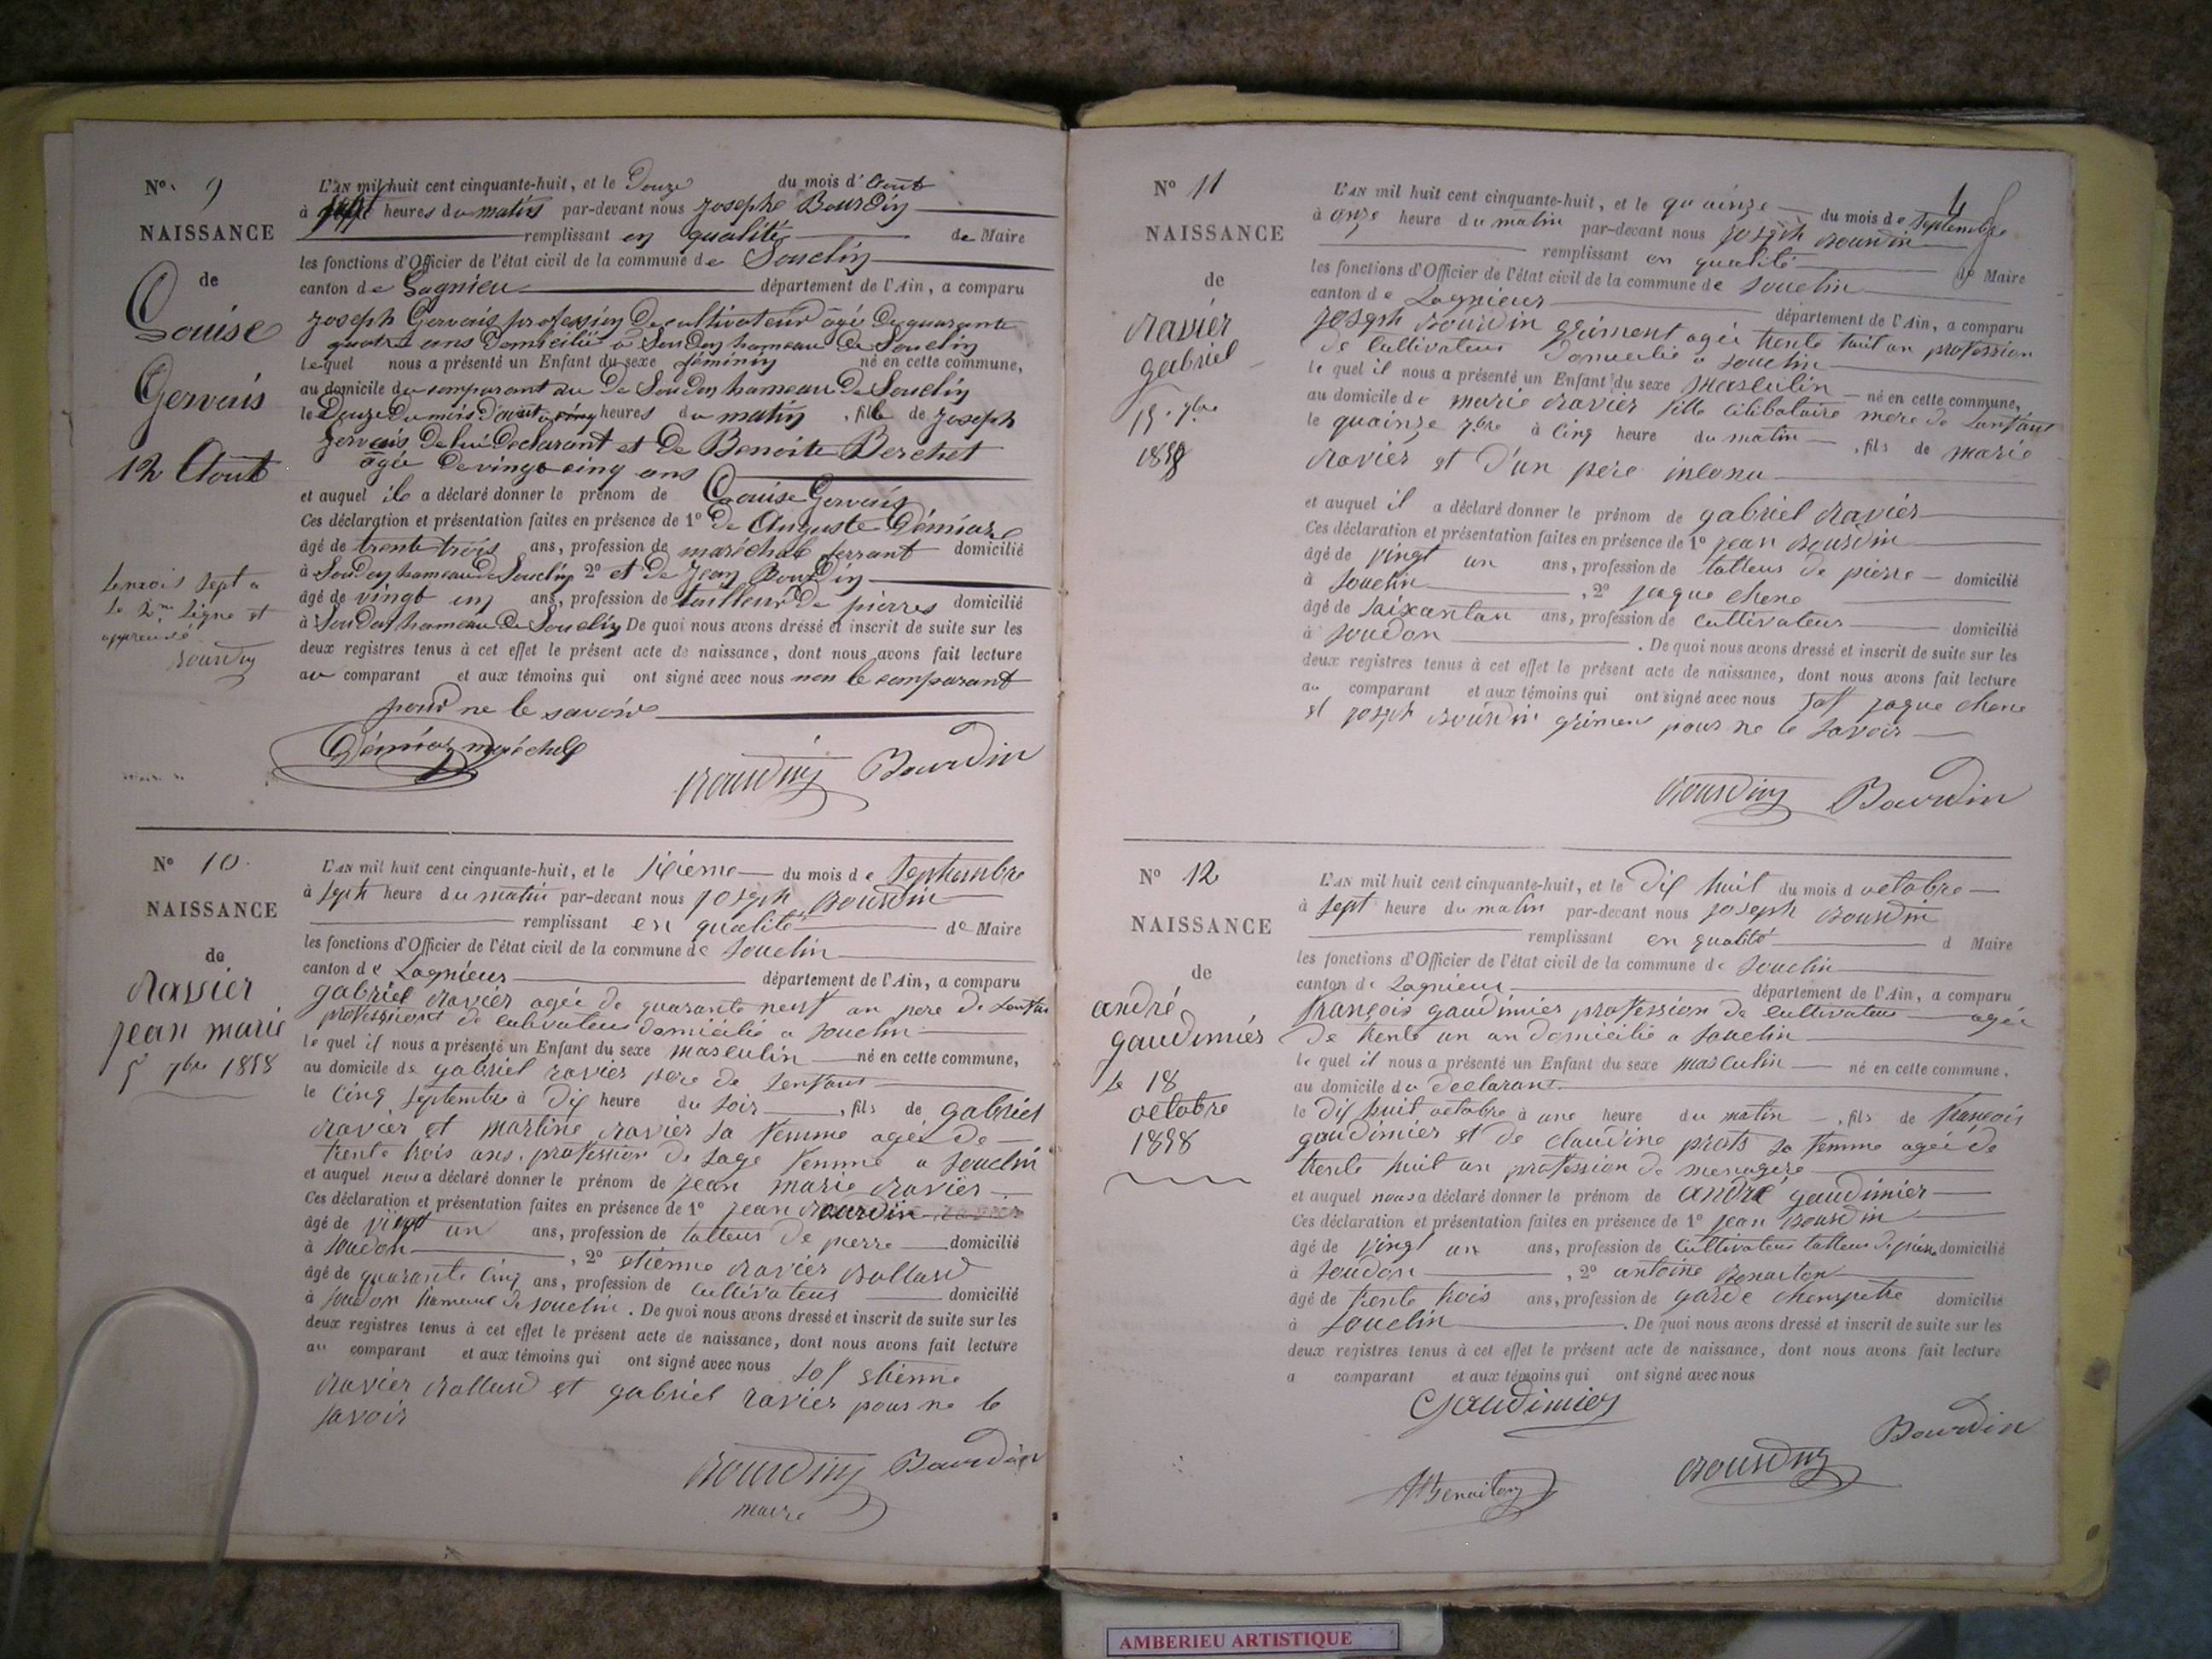 N° 9
NAISSANCE
de
Louise
Gervais
12 Août
le mois sept a
la 2me ligne est
approuvé
Bourdin
L'AN mil huit cent cinquante-huit, et le Douze du mois d'Août
à sept heures du matin par-devant nous Josephe Bourdin
remplissant en qualité de Maire
les fonctions d'Officier de l'état civil de la commune de Souclin
canton de Lagnieu département de l'Ain, a comparu
Joseph Gervais profession De cultivateur âgé De quarante
quatre ans Domicilié à Soudon hameau de Souclin
lequel nous a présenté un Enfant du sexe féminin né en cette commune,
au domicile du comparant au De Soudon hameau De Souclin
le Douze du mois d'août à cinq heures du matin, fille de Joseph
Gervais De lui Declarant et De Benoite Berchet
âgée De vingt cinq ans
et auquel il a déclaré donner le prénom de Louise Gervais
Ces déclaration et présentation faites en présence de 1° De Auguste Démiaz
âgé de trente trois ans, profession de maréchal ferrant domicilié
à Soudon hameau De Souclin 2° et de Jean Bourdin
âgé de vingt un ans, profession de tailleur De pierres domicilié
à Soudon hameau De Souclin De quoi nous avons dressé et inscrit de suite sur les
deux registres tenus à cet effet le présent acte de naissance, dont nous avons fait lecture
au comparant et aux témoins qui ont signé avec nous non le comparant
pour ne le savoir
Démiaz maréchal
Bourdin Bourdin
N° 10
NAISSANCE
de
ravier
jean marie
5 7bre 1858
L'AN mil huit cent cinquante-huit, et le sixième du mois de septembre
à septe heure du matin par-devant nous joseph Bourdin
remplissant en qualité de Maire
les fonctions d'Officier de l'état civil de la commune de souclin
canton de Lagnieus département de l'Ain, a comparu
gabriel ravier agée de quarante neuf an pere de lenfan
professiont de cultivateur domicilié a souclin
le quel il nous a présenté un Enfant du sexe masculin né en cette commune,
au domicile de gabriel ravier pere de lenfant
le cinq septembre à dix heure du soir, fils de gabriel
ravier et martine ravier sa femme agée de
trente trois ans, profession de sage femme a souclin
et auquel nous a déclaré donner le prénom de jean marie ravier
Ces déclaration et présentation faites en présence de 1° jean Bourdin
âgé de vingt un ans, profession de talleur de pierre domicilié
à soudon, 2° etienne ravier Rollard
âgé de quarante cinq ans, profession de cultivateur domicilié
à soudon hameau de souclin. De quoi nous avons dressé et inscrit de suite sur les
deux registres tenus à cet effet le présent acte de naissance, dont nous avons fait lecture
au comparant et aux témoins qui ont signé avec nous sof etienne
ravier rollard et gabriel ravier pour ne le
savoir
Bourdin Bourdin
maire
4
N° 11
NAISSANCE
de
ravier
gabriel
15 7bre
1858
L'AN mil huit cent cinquante-huit, et le quainze du mois de septembre
à onze heure du matin par-devant nous joseph Bourdin
remplissant en qualité de Maire
les fonctions d'Officier de l'état civil de la commune de souclin
canton de Lagnieus département de l'Ain, a comparu
joseph Bourdin griment agée trente huit an profession
de cultivateur domicilié a souclin
le quel il nous a présenté un Enfant du sexe masculin né en cette commune,
au domicile de marie ravier fille célibataire mere de lenfant
le quainze 7bre à cinq heure du matin, fils de marie
ravier et d'un pere inconu
et auquel il a déclaré donner le prénom de gabriel ravier
Ces déclaration et présentation faites en présence de 1° jean Bourdin
âgé de vingt un ans, profession de talleur de pierre domicilié
à souclin, 2° jaque chene
âgé de ans, profession de cultivateur domicilié
à soudon. De quoi nous avons dressé et inscrit de suite sur les
deux registres tenus à cet effet le présent acte de naissance, dont nous avons fait lecture
au comparant et aux témoins qui ont signé avec nous sof jaque chene
et joseph Bourdin grimen pour ne le savoir
Bourdin Bourdin
N° 12
NAISSANCE
de
andré
gaudimier
le 18
octobre
1858
L'AN mil huit cent cinquante-huit, et le dix huit du mois d octobre
à sept heure du matin par-devant nous joseph Bourdin
remplissant en qualité d Maire
les fonctions d'Officier de l'état civil de la commune de souclin
canton de Lagnieu département de l'Ain, a comparu
françois gaudimier profession de cultivateur agée
de trente un an domicilié a souclin
le quel il nous a présenté un Enfant du sexe masculin né en cette commune,
au domicile du declarant
le dix huit octobre à une heure du matin, fils de françois
gaudimier et de claudine prots sa femme agée de
trente huit an profession de menagère
et auquel nous a déclaré donner le prénom de andré gaudimier
Ces déclaration et présentation faites en présence de 1° jean Bourdin
âgé de vingt un ans, profession de cultivateur talleur de pierre domicilié
à soudon, 2° antoine Benaiton
âgé de trente trois ans, profession de garde champetre domicilié
à souclin. De quoi nous avons dressé et inscrit de suite sur les
deux registres tenus à cet effet le présent acte de naissance, dont nous avons fait lecture
a comparant et aux témoins qui ont signé avec nous
Gaudimier
Bourdin
Bourdin
Benaiton
AMBERIEU ARTISTIQUE